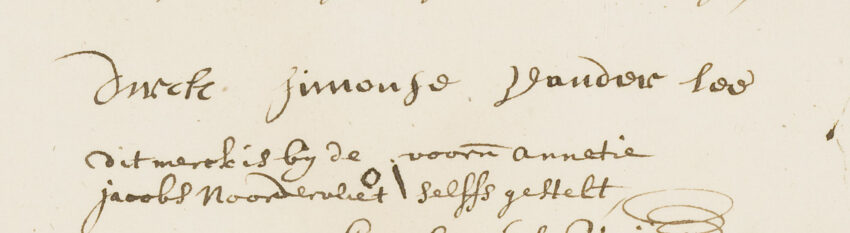 Dirck simonse vander lee
dit merck is by de voorn annetie
jacobs Noordervliet selffs gestelt